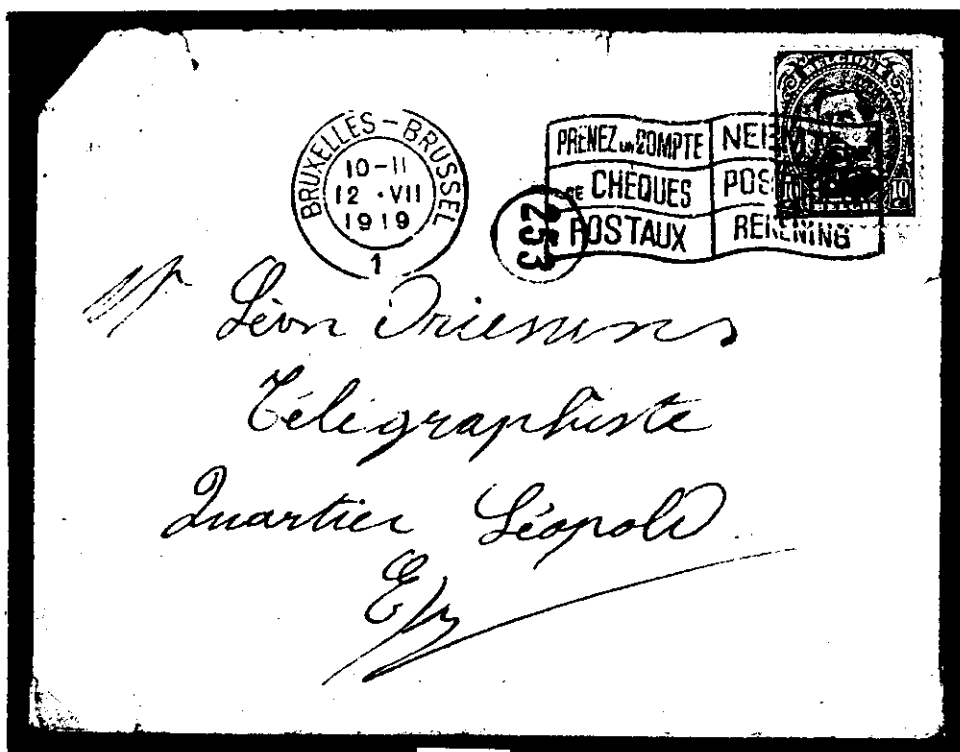 BELGIQUE
BRUXELLES-BRUSSEL
10-11
12 · VII
1919
1
253
PRENEZ UN COMPTE
DE CHÈQUES
POSTAUX
POS
REKENING
10
Mr Léon Driesmans
Télégraphiste
Quartier Léopold
E/V